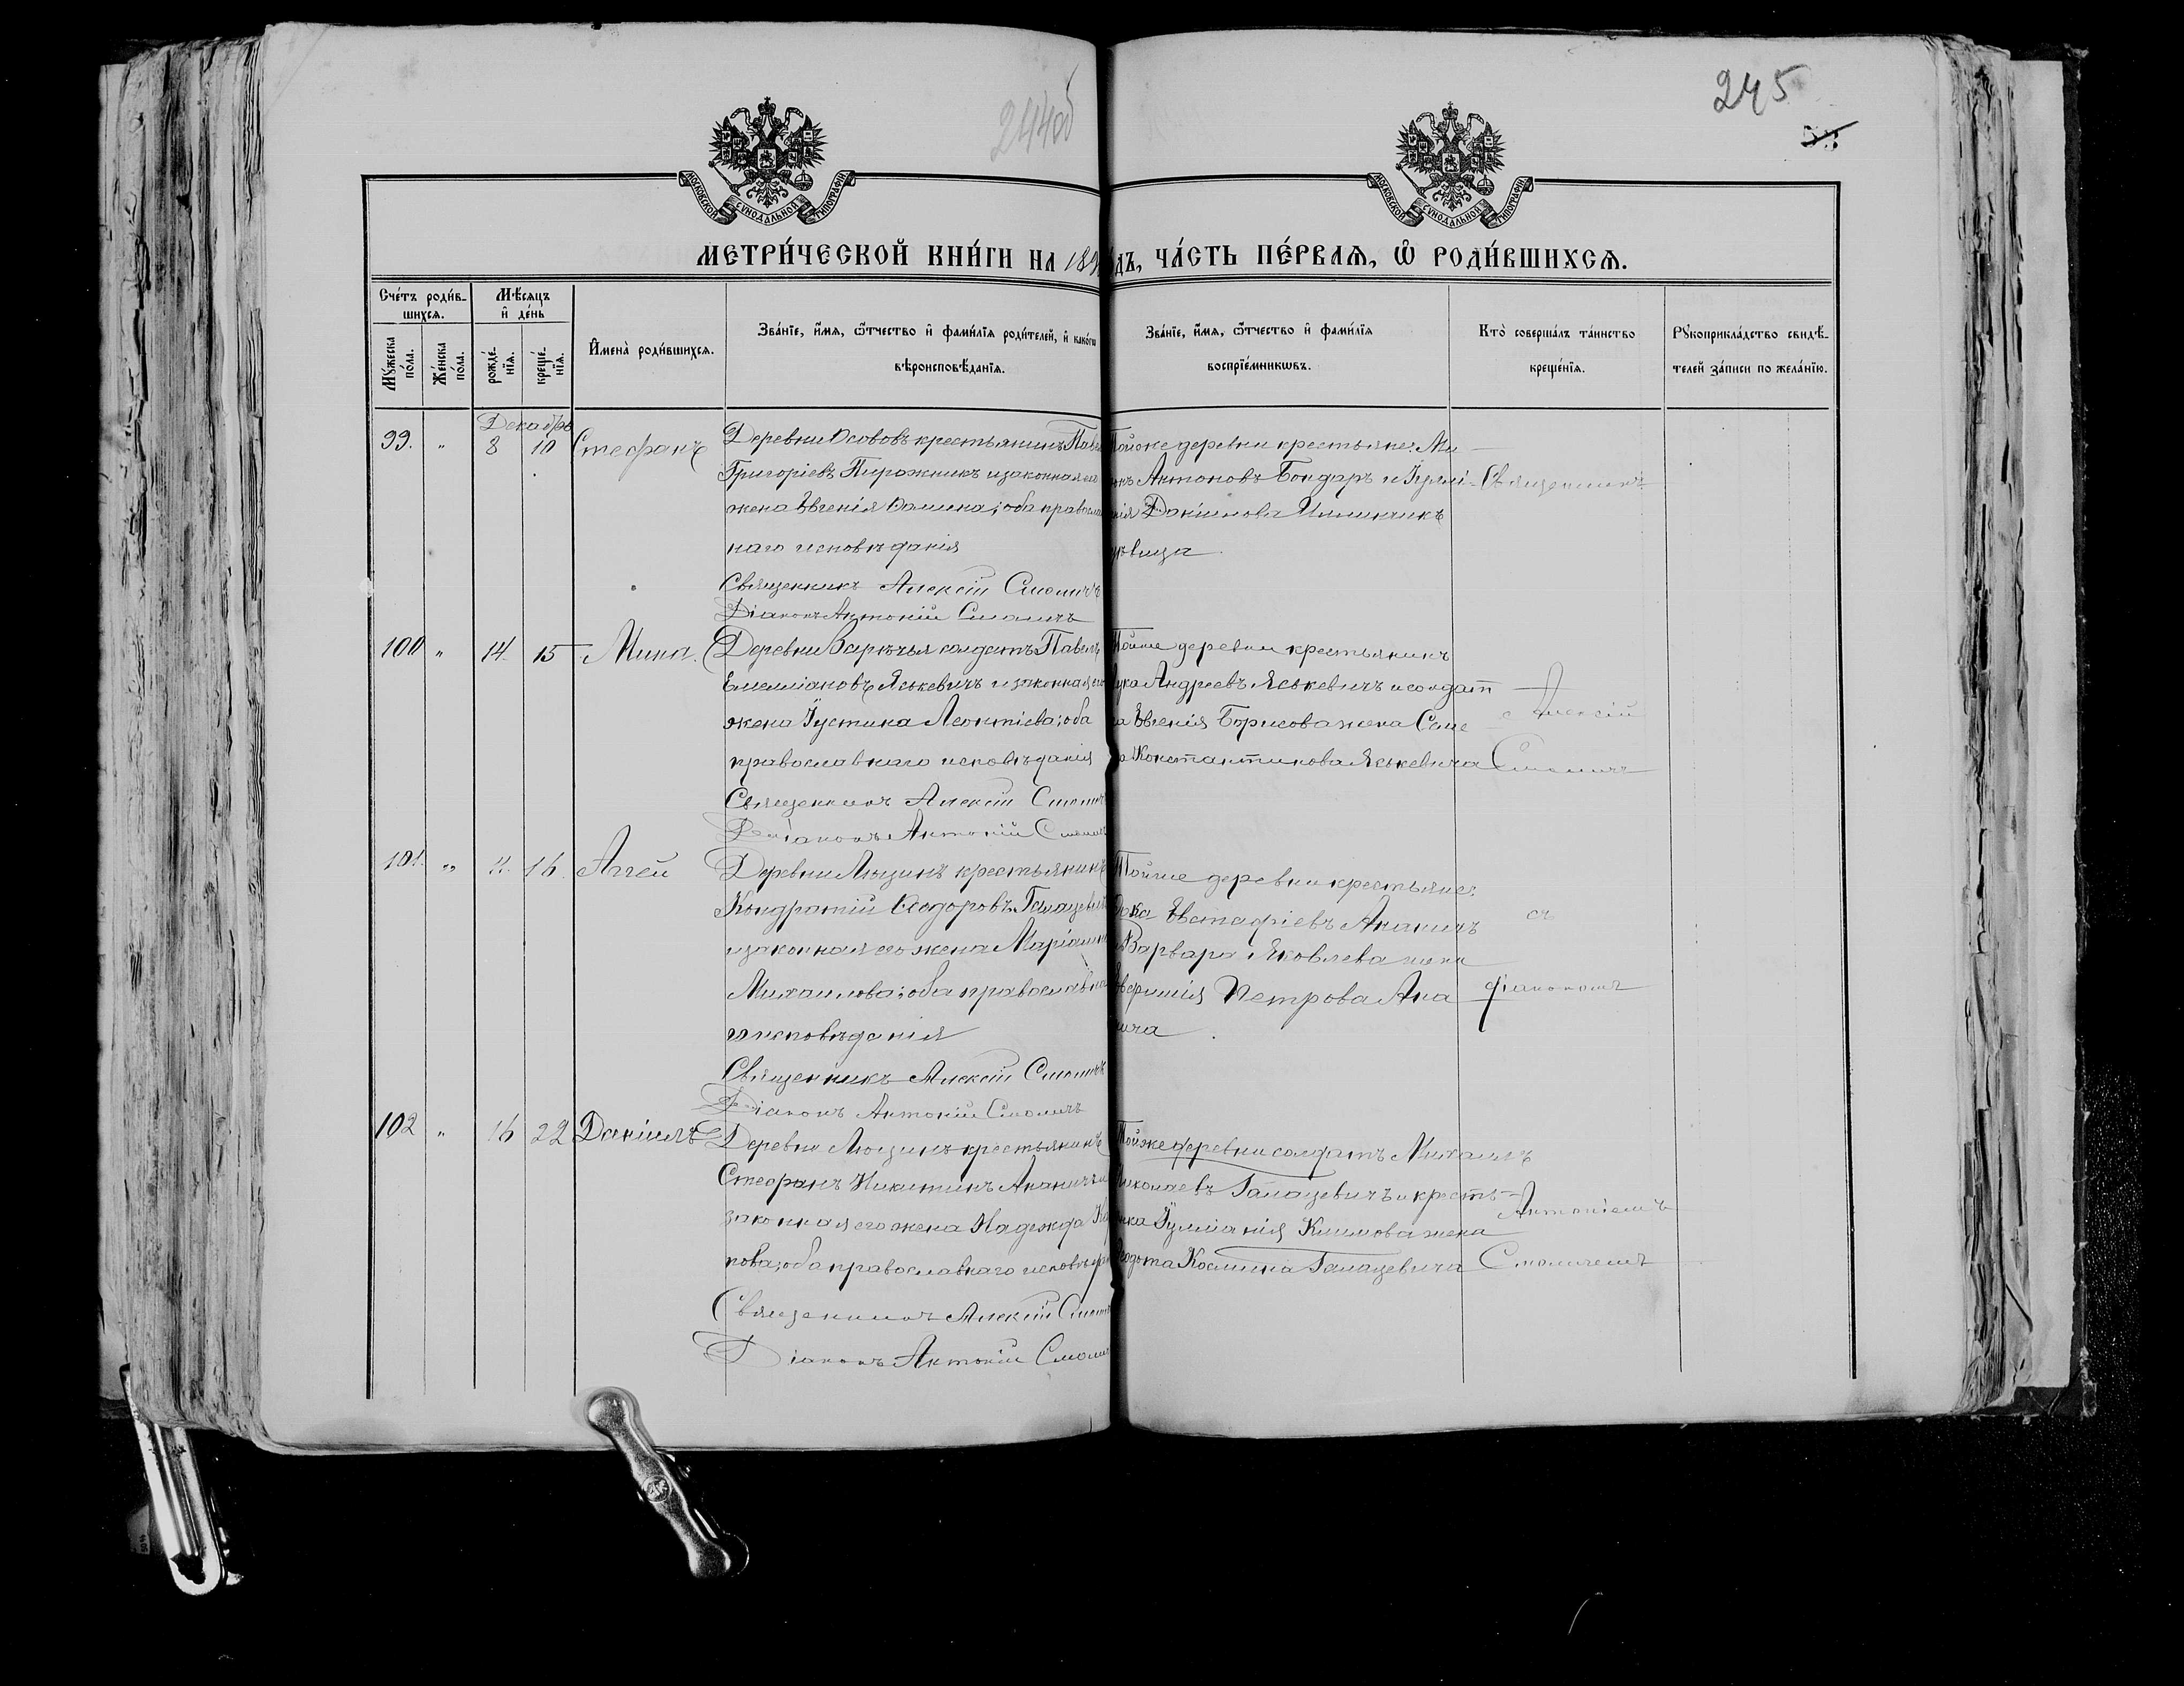 244об
245
МОСКОВСКОЙ СѴНОДАЛЬНОЙ ТИПОГРАФІИ
МОСКОВСКОЙ СѴНОДАЛЬНОЙ ТИПОГРАФІИ
МЕТРИ́ЧЕСКОЙ КНИ́ГИ НА 189 ДЪ, ЧА́СТЬ ПЕ́РВАѦ, Ѿ РОДИ́ВШИХСѦ.
Сче́тъ роди́в-
шихсѧ.
Мѣ́сѧцъ
и҆ де́нь
Мꙋ́жеска по́ла.
Же́нска по́ла.
рожде́-нїѧ.
креще́-нїѧ.
И҆мена̀ роди́вшихсѧ.
Зва́нїе, и҆́мѧ, ѻ҆́тчество и҆ фами́лїѧ роди́телей, и҆ како́гѡ
вѣроисповѣ́данїѧ.
Зва́нїе, и҆́мѧ, ѻ҆́тчество и҆ фами́лїѧ
воспрїе́мникѡвъ.
Кто̀ соверша́лъ та́инство
креще́нїѧ.
Рꙋкоприкла́дство свидѣ́-
телей за́писи по жела́нїю.
Декабрь
99. " 8 10 Стефанъ
Деревни Осовов крестьянинъ Павел
Григоріевъ Пирожникъ и законная его
жена Евгенія; оба православ
наго исповѣданія
Священникъ Алексій Смоличъ
Діаконъ Антоній Смоличъ
Тойже деревни крестьяне: Ми
Антоновъ Бондаръ и Іулі-
нія
дѣвица
100 " 14 15 Мина.
Деревни Заричья солдатъ Павелъ
Емелліановъ Яськевичъ и законная его
жена Іустина Леонтіева; оба
православнаго исповѣданія
Священникъ Алексій Смоличъ
Діаконъ Антоній Смоличъ
Тойже деревни крестьянинъ
Лука Андреевъ Яськевичъ и солдат
ка Евгенія Борисова жена Семе
на Константинова Яськевича
101. " 11. 16. Аггей
Деревни Люзинъ крестьянинъ
Кондратій Ѳеодоровъ Галацевичъ
и законная его жена Маріанна
Михаилова; оба православна
го исповѣданія
Священникъ Алексій Смоличъ
Діаконъ Антоній Смоличъ
Тойже деревни крестьяне:
Евстафіевъ Ананичъ
и Варвара Яковлева жена
Петрова Ана
нича
102 " 16 22 Даніилъ
Деревни Люзинъ крестьянинъ
Стефанъ Никитинъ Ананичъ и
законная его жена Надежда
пова; оба православнаго исповѣдан
Священникъ Алексій Смолич
Діаконъ Антоній Смолич
Тойже деревни солдатъ Михаилъ
Николаевъ Галацевичъ и кресть-
янка Іуліанія Климова жена
Ѳедота Космина Галацевича
Священникъ
Алексій
Смоличъ
съ
діакономъ
Антоніемъ
Смоличемъ